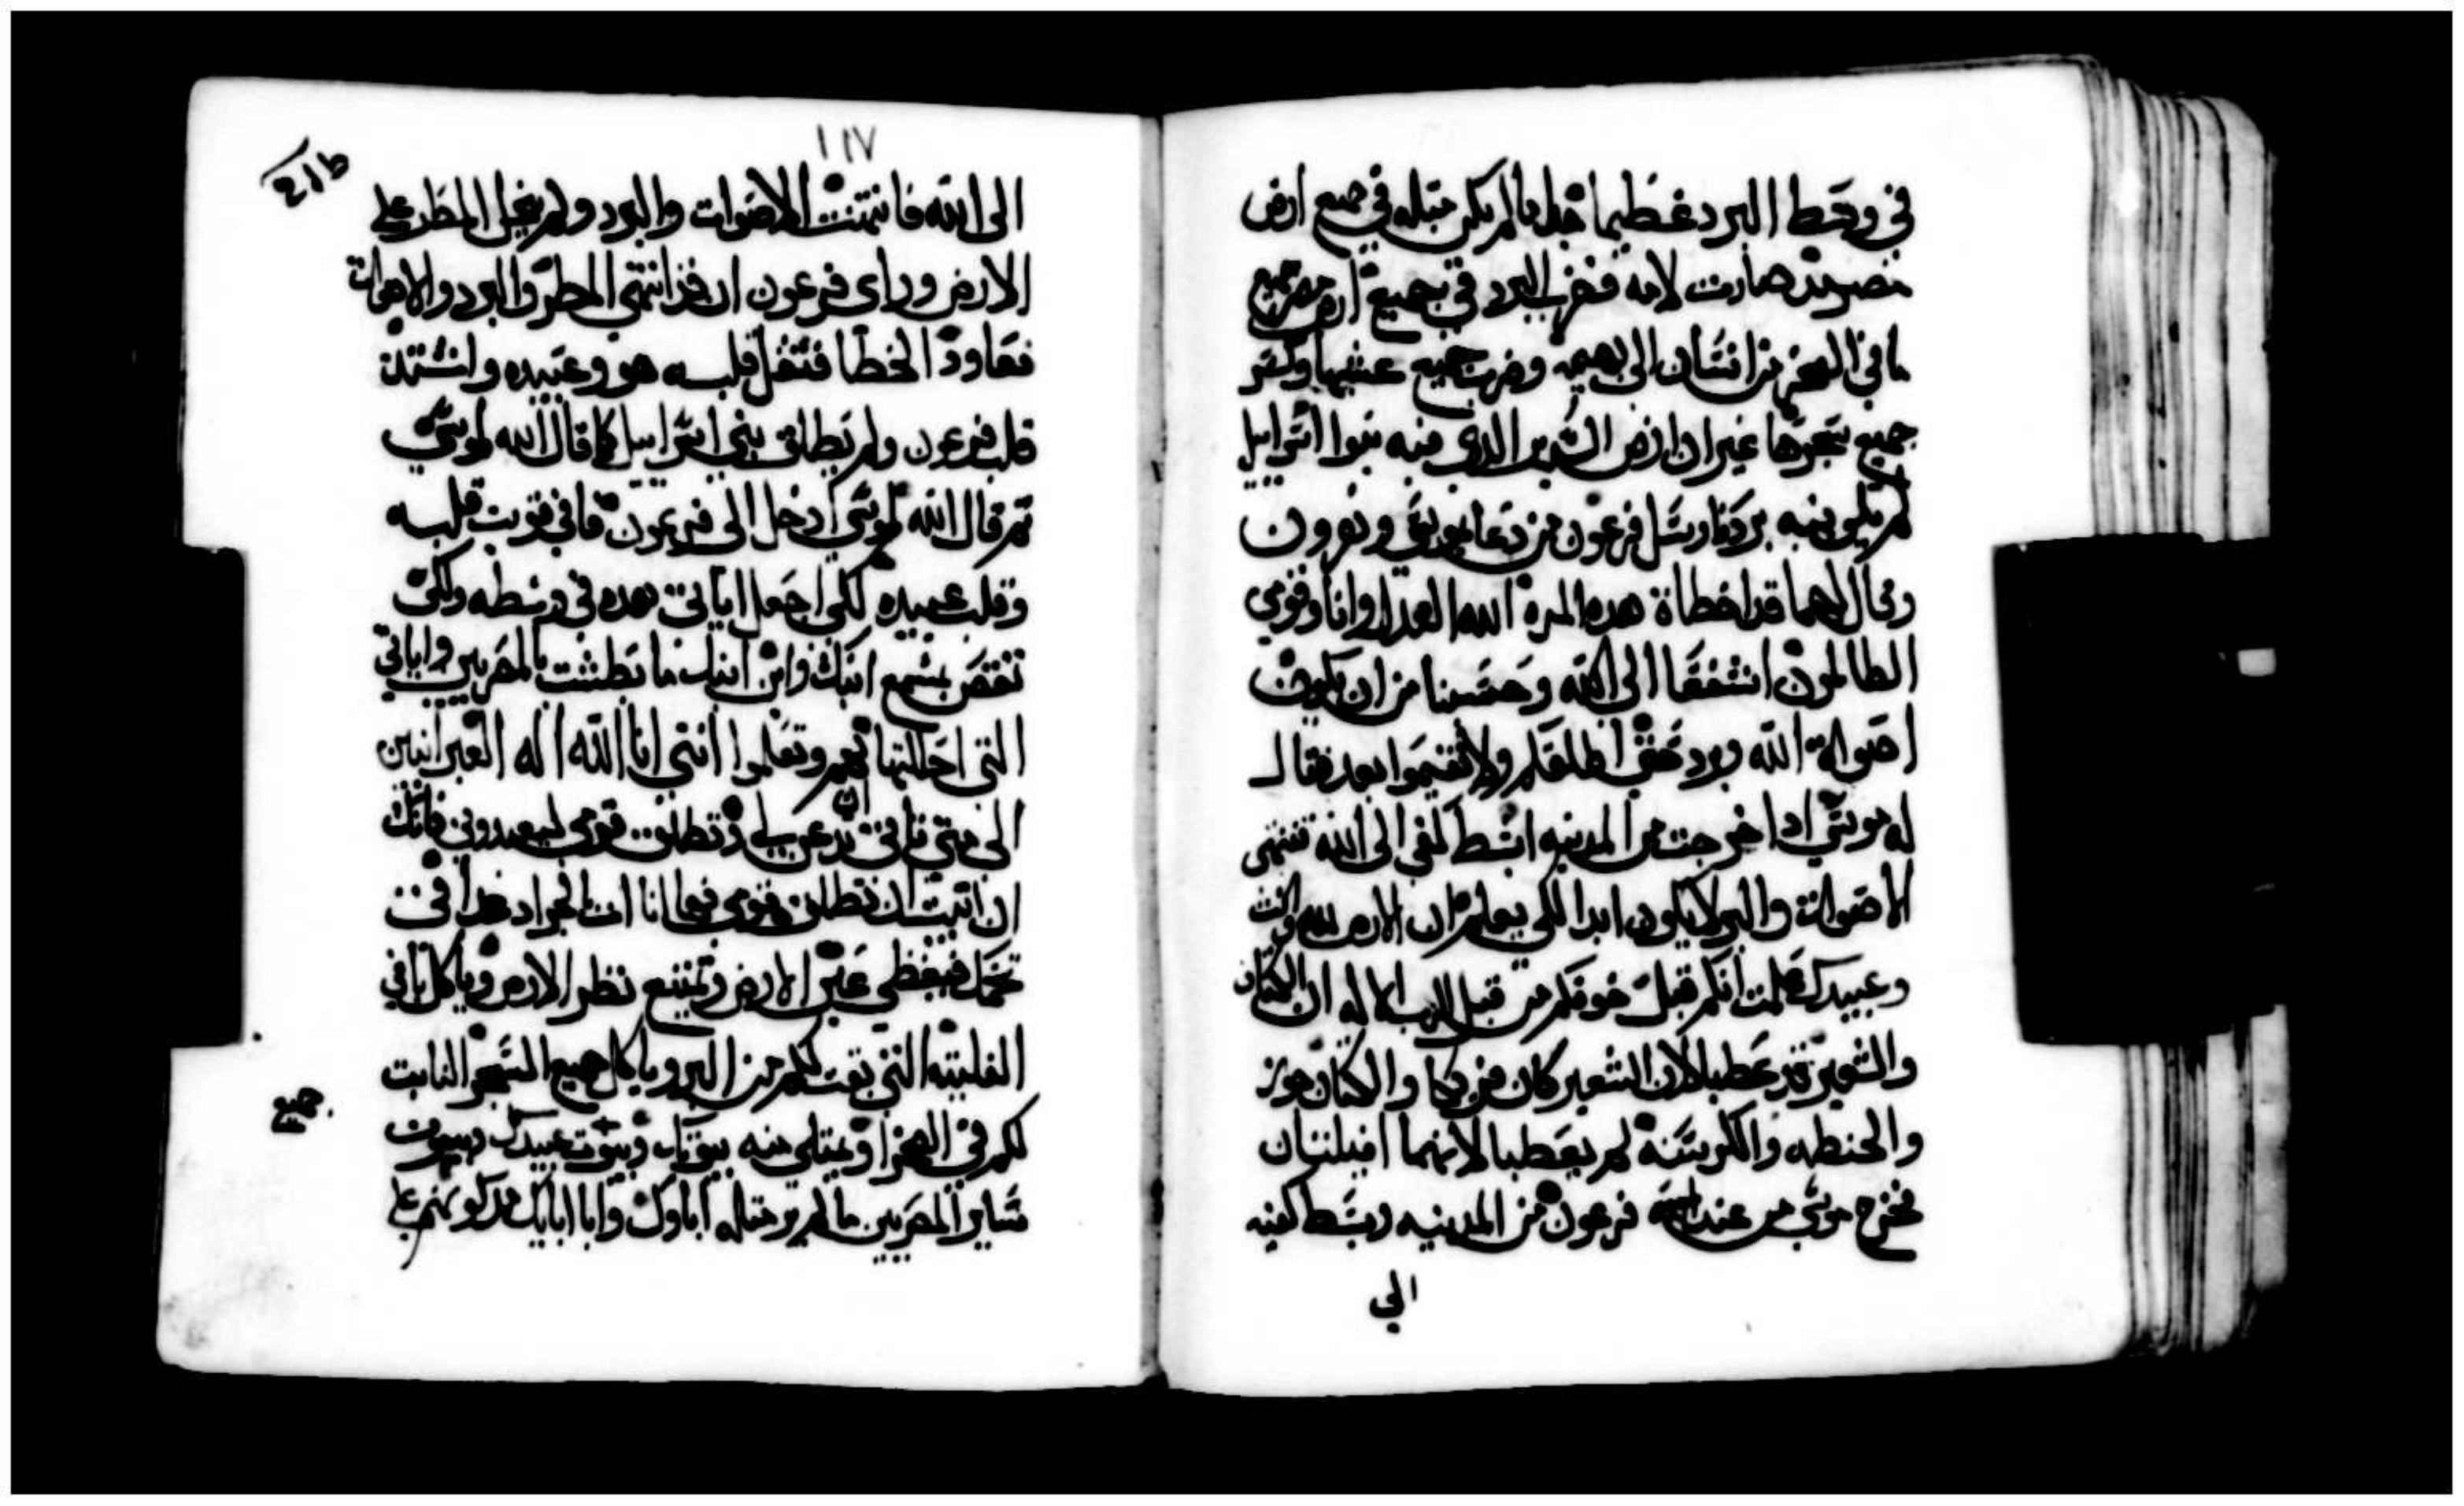 في وسط البرد عظيما جدا ما لم يكن مثله في جميع ارض
مصر منذ صارت لامه فضرب البرد في جميع ارض مصر جميع
ما في الصحرا من انسان الى بهيمه وضرب جميع عشبها وكسر
جميع شجرها غير ان ارض السدير الدي فيه بنوا اسراييل
لم يكن فيه برد فارسل فرعون من دعا موسى وهرون
وقال لهما قد اخطاة هده المره الله العدل وانا وقومي
الطالمون استشفعا الى الله وحسبنا من ان يكون
اصوات الله وبرد حتى اطلقكم ولا تقيموا بعد فقال
له موسي ادا خرجت من المدينه ابسط كفي الى الله فتنتهي
الاصوات والبرد لا يكون ابدا لكي يعلم ان الارض لله وانت
وعبيدك علمت انكم قبل خوفكم من قبل الرب الاله ان الكتان
والشعير قد عطبا لان الشعير كان فريكا والكتان جوز
والحنطه والكرسنه لم يعطبا لانهما افيلتان
فخرج موسي من عند فرعون من المدينه وبسط كفيه
الي
١١٧
الى الله فانتهت الاصوات والبرد ولم ينزل المطر على
الارض وراى فرعون ان قد انتهى المطر والبرد والاصوات
فعاود الخطا فثقل قلبه هو وعبيده واشتد
قلب فرعون ولم يطلق بني اسراييل كما قال الله لموسي
ثم قال الله لموسي ادخل الى فرعون فاني قويت قلبه
وقلب عبيده لكي اجعل اياتى هده في وسطه ولكى
تقص بسمع ابنك وابن ابنك ما بطشت بالمصريين واياتي
التي احللتها بهم وتعلموا انني انا الله اله العبرانيين
الى متي تابى ان تدعن لي تطلق قومي ليعبدوني فانك
ان ابيت ان تطلق قومي فها انا ات بالجراد غدا في
تخمك فيغطي عين الارض ويمتنع نظر الارض وياكل باقي
الفليته التي بقت لكم من البرد وياكل جميع الشجر النابت
لكم في الصحرا ويمتلي منه بيوتك وبيوت عبيدك وبيوت
ساير المصريين ما لم ير مثله اباوك وابا ابايك مد كونهم على
جميع